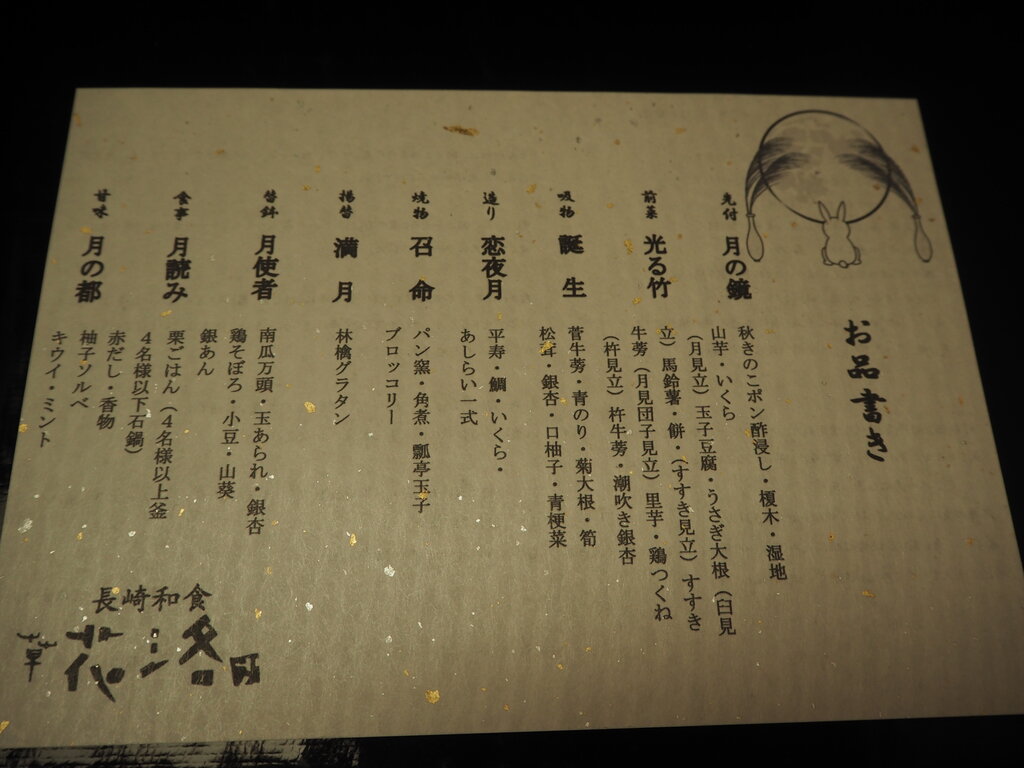 お品書き
先付 月の鏡
秋きのこポン酢浸し・榎木・湿地
山芋・いくら
前菜 光る竹
(月見立)玉子豆腐・うさぎ大根(臼見
立)馬鈴薯・餅・(すすき見立)すすき
牛蒡(月見団子見立)里芋・鶏つくね
(杵見立)杵牛蒡・潮吹き銀杏
吸物 誕生
菅牛蒡・青のり・菊大根・筍
松茸・銀杏・口柚子・青梗菜
造り 恋夜月
平寿・鯛・いくら・
あしらい一式
焼物 召命
パン窯・角煮・瓢亭玉子
ブロッコリー
揚替 満月
林檎グラタン
替鉢 月使者
南瓜万頭・玉あられ・銀杏
鶏そぼろ・小豆・山葵
銀あん
食事 月読み
栗ごはん(4名様以上釜
4名様以下石鍋)
赤だし・香物
甘味 月の都
柚子ソルベ
キウイ・ミント
長崎和食